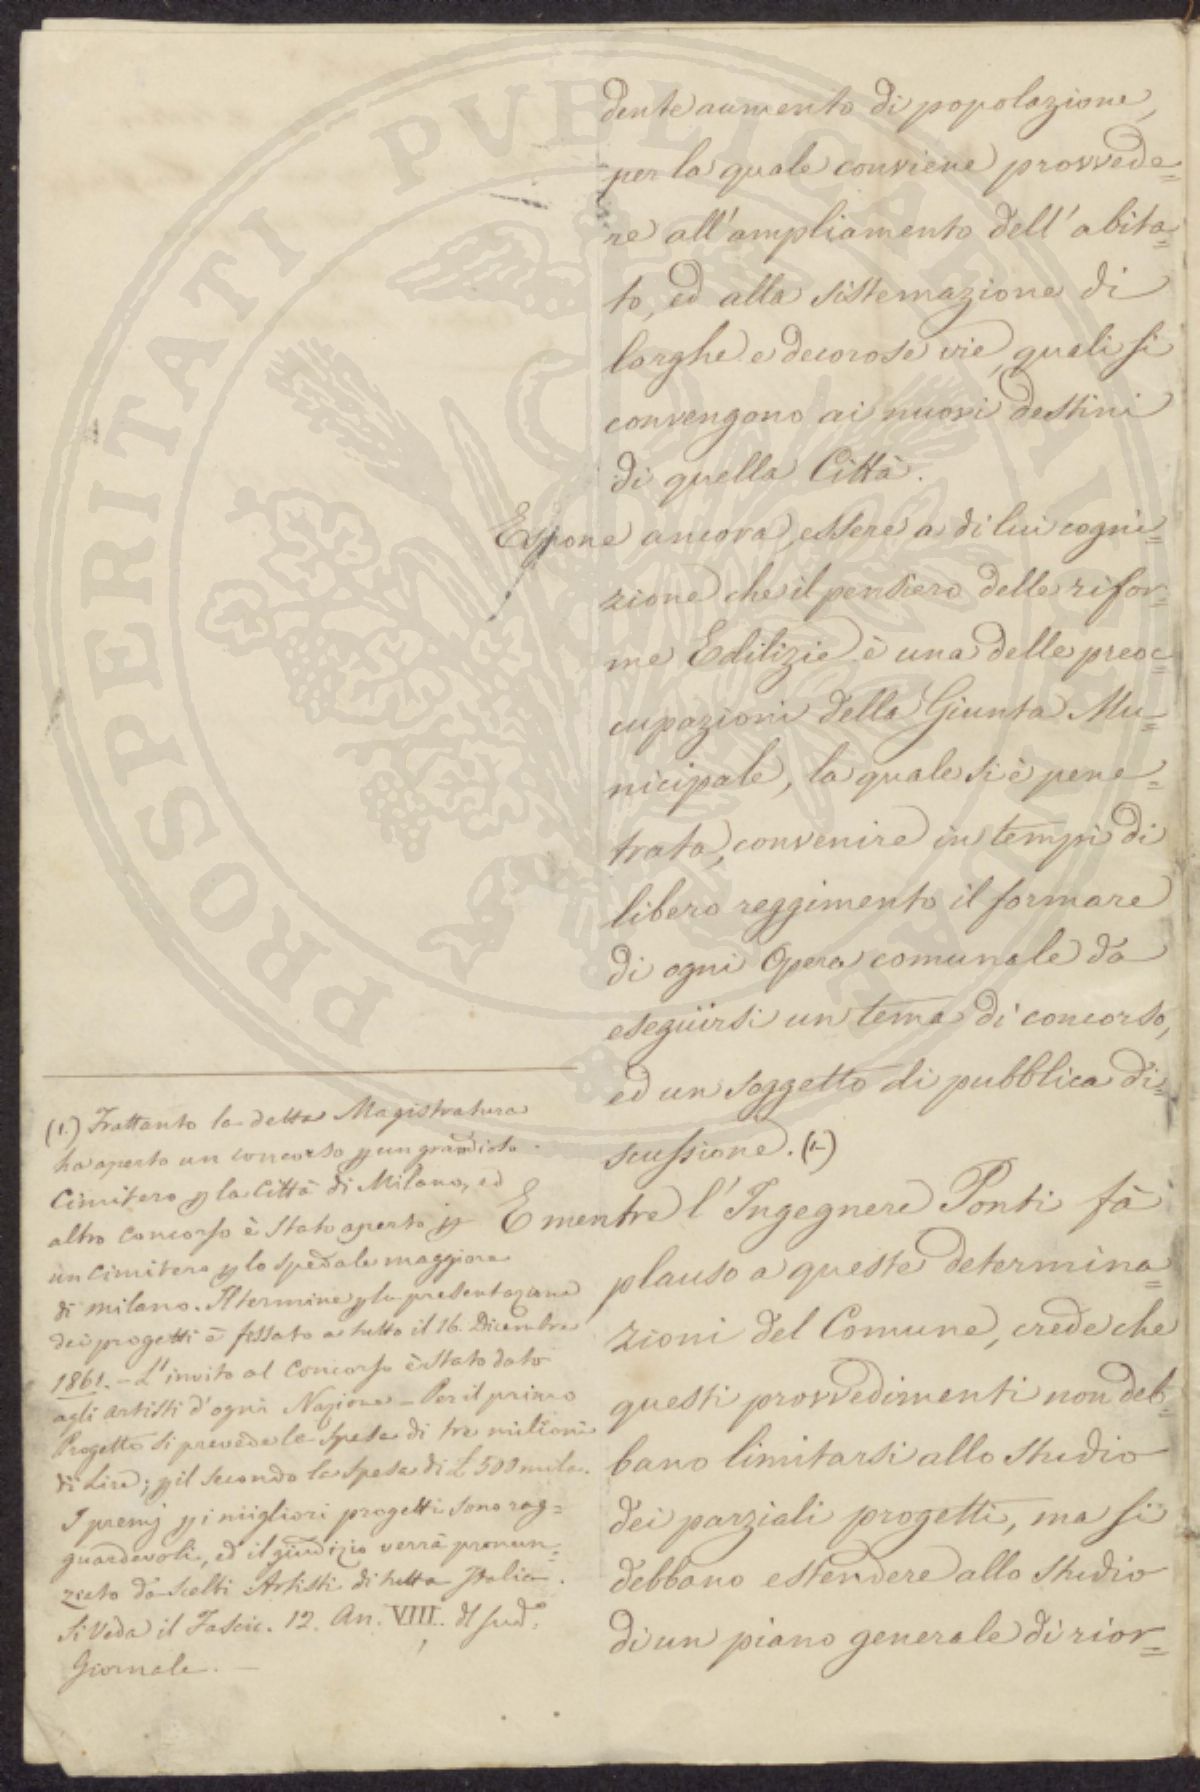 dente aumento di popolazione,
per la quale conviene provvede=
re all'ampliamento dell'abita=
to, ed alla sistemazione di
larghe e decorose vie, quali si
convengono ai nuovi destini
di quella Città.
Espone ancora, essere a di lui cogni=
zione che il pensiero delle rifor=
me Edilizie è una delle preoc=
cupazioni della Giunta Mu=
nicipale, la quale si è pene=
trata, convenire in tempi di
libero reggimento il formare
di ogni Opera comunale da
eseguirsi un tema di concorso,
ed un soggetto di pubblica di=
scussione. (1.)
E mentre l'Ingegnere Ponti fà
plauso a queste determina=
zioni del Comune, crede che
questi provvedimenti non deb=
bano limitarsi allo studio
dei parziali progetti, ma si
debbano estendere allo studio
di un piano generale di rior=
(1.) Frattanto la detta Magistratura
ha aperto un concorso p un grandioso
Cimitero p la Città di Milano, ed
altro Concorso è stato aperto p
un Cimitero p lo spedale maggiore
di Milano. Il termine p la presentazione
dei progetti è fissato a tutto il 16 Dicembre
1861. - L'invito al Concorso è stato dato
agli artisti d'ogni Nazione - Per il primo
Progetto si prevede la spesa di tre milioni
di Lire; p il secondo la spesa di £ 500 mila.
I premj p i migliori progetti sono rag=
guardevoli, ed il giudizio verrà pronun=
ziato da scelti Artisti di tutta Italia.
Si veda il Fascic. 12. An. VIII. dl sud.º
Giornale. -
PROSPERITATI PVBLICAE AVGENDAE